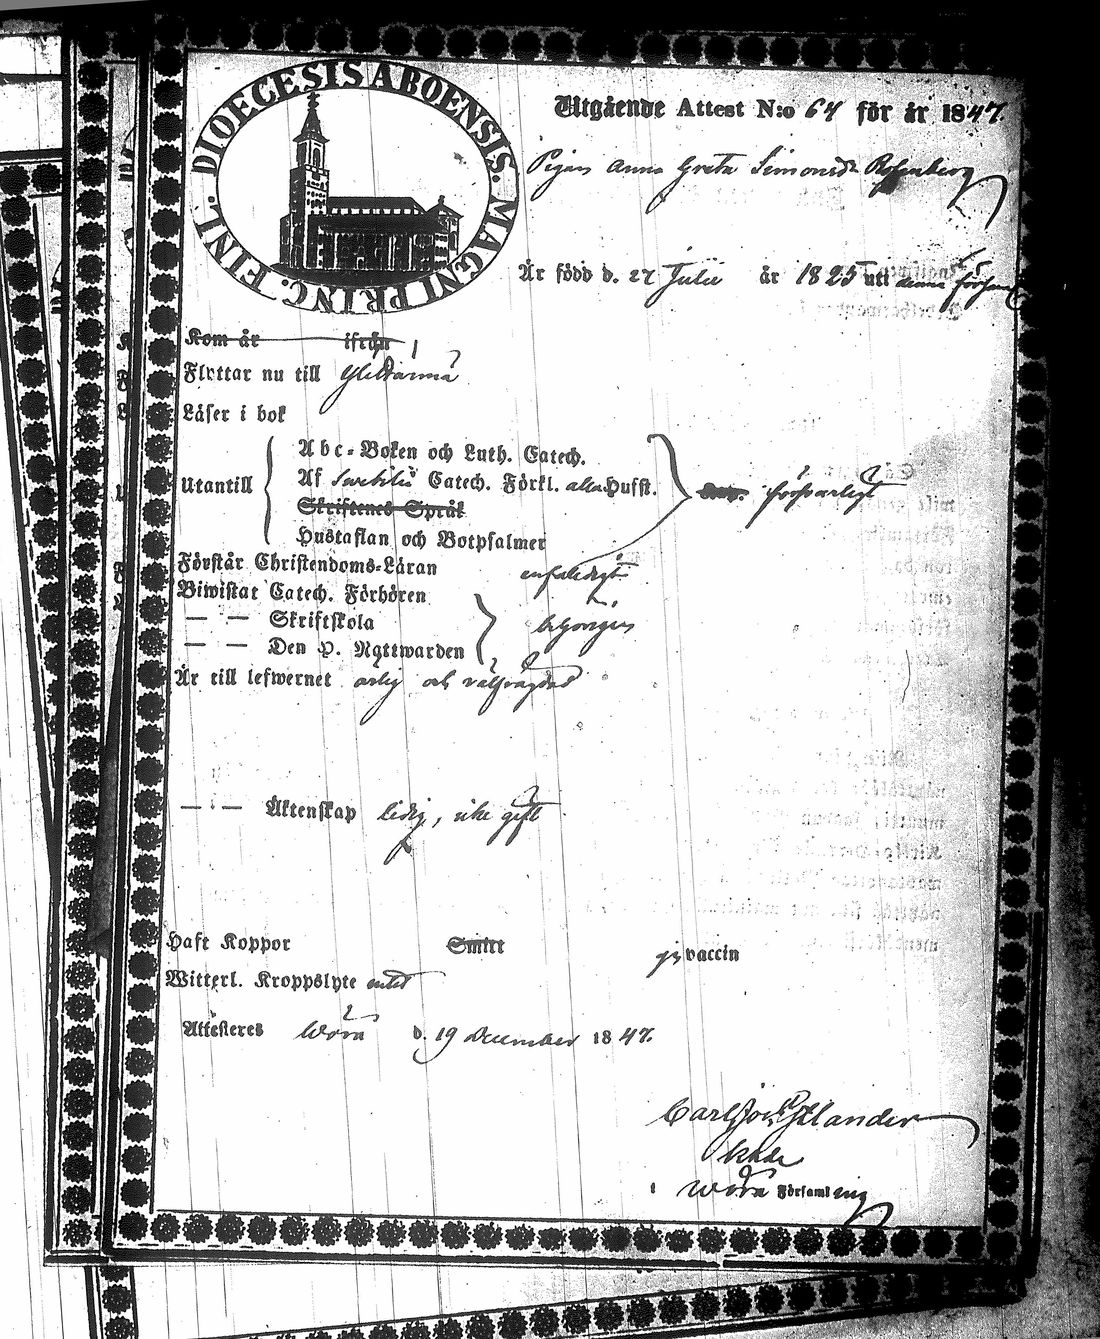 DIOECESIS ABOENSIS. MAGNI PRINC. FINL.
Utgående Attest N:o 64 för år 1847.
Pigan Anna Greta Simonsdr Rosenberg
Är född d. 27 Julii år 1825 uti denna förs
Kom år ifrån
Flyttar nu till Ylistarmå
Läser i bok
Utantill
Abc-Boken och Luth. Catech.
Af Catech. Förkl. Husst.
försvarligt
Skriftenes Språk
Hustaflan och Botpsalmer
Förstår Christendoms-Läran enfaldigt
Biwistat Catech. Förhören
— — Skriftskola
— — Den H. Nattwarden
Är till lefwernet ärlig och välfrägdad
— — Äktenskap ledig, icke gift
Haft Koppor Smitt vaccin
Witterl. Kroppslyte intet
Attesteres Wörå d. 19 December 1847.
Carl
i Wörå Församling